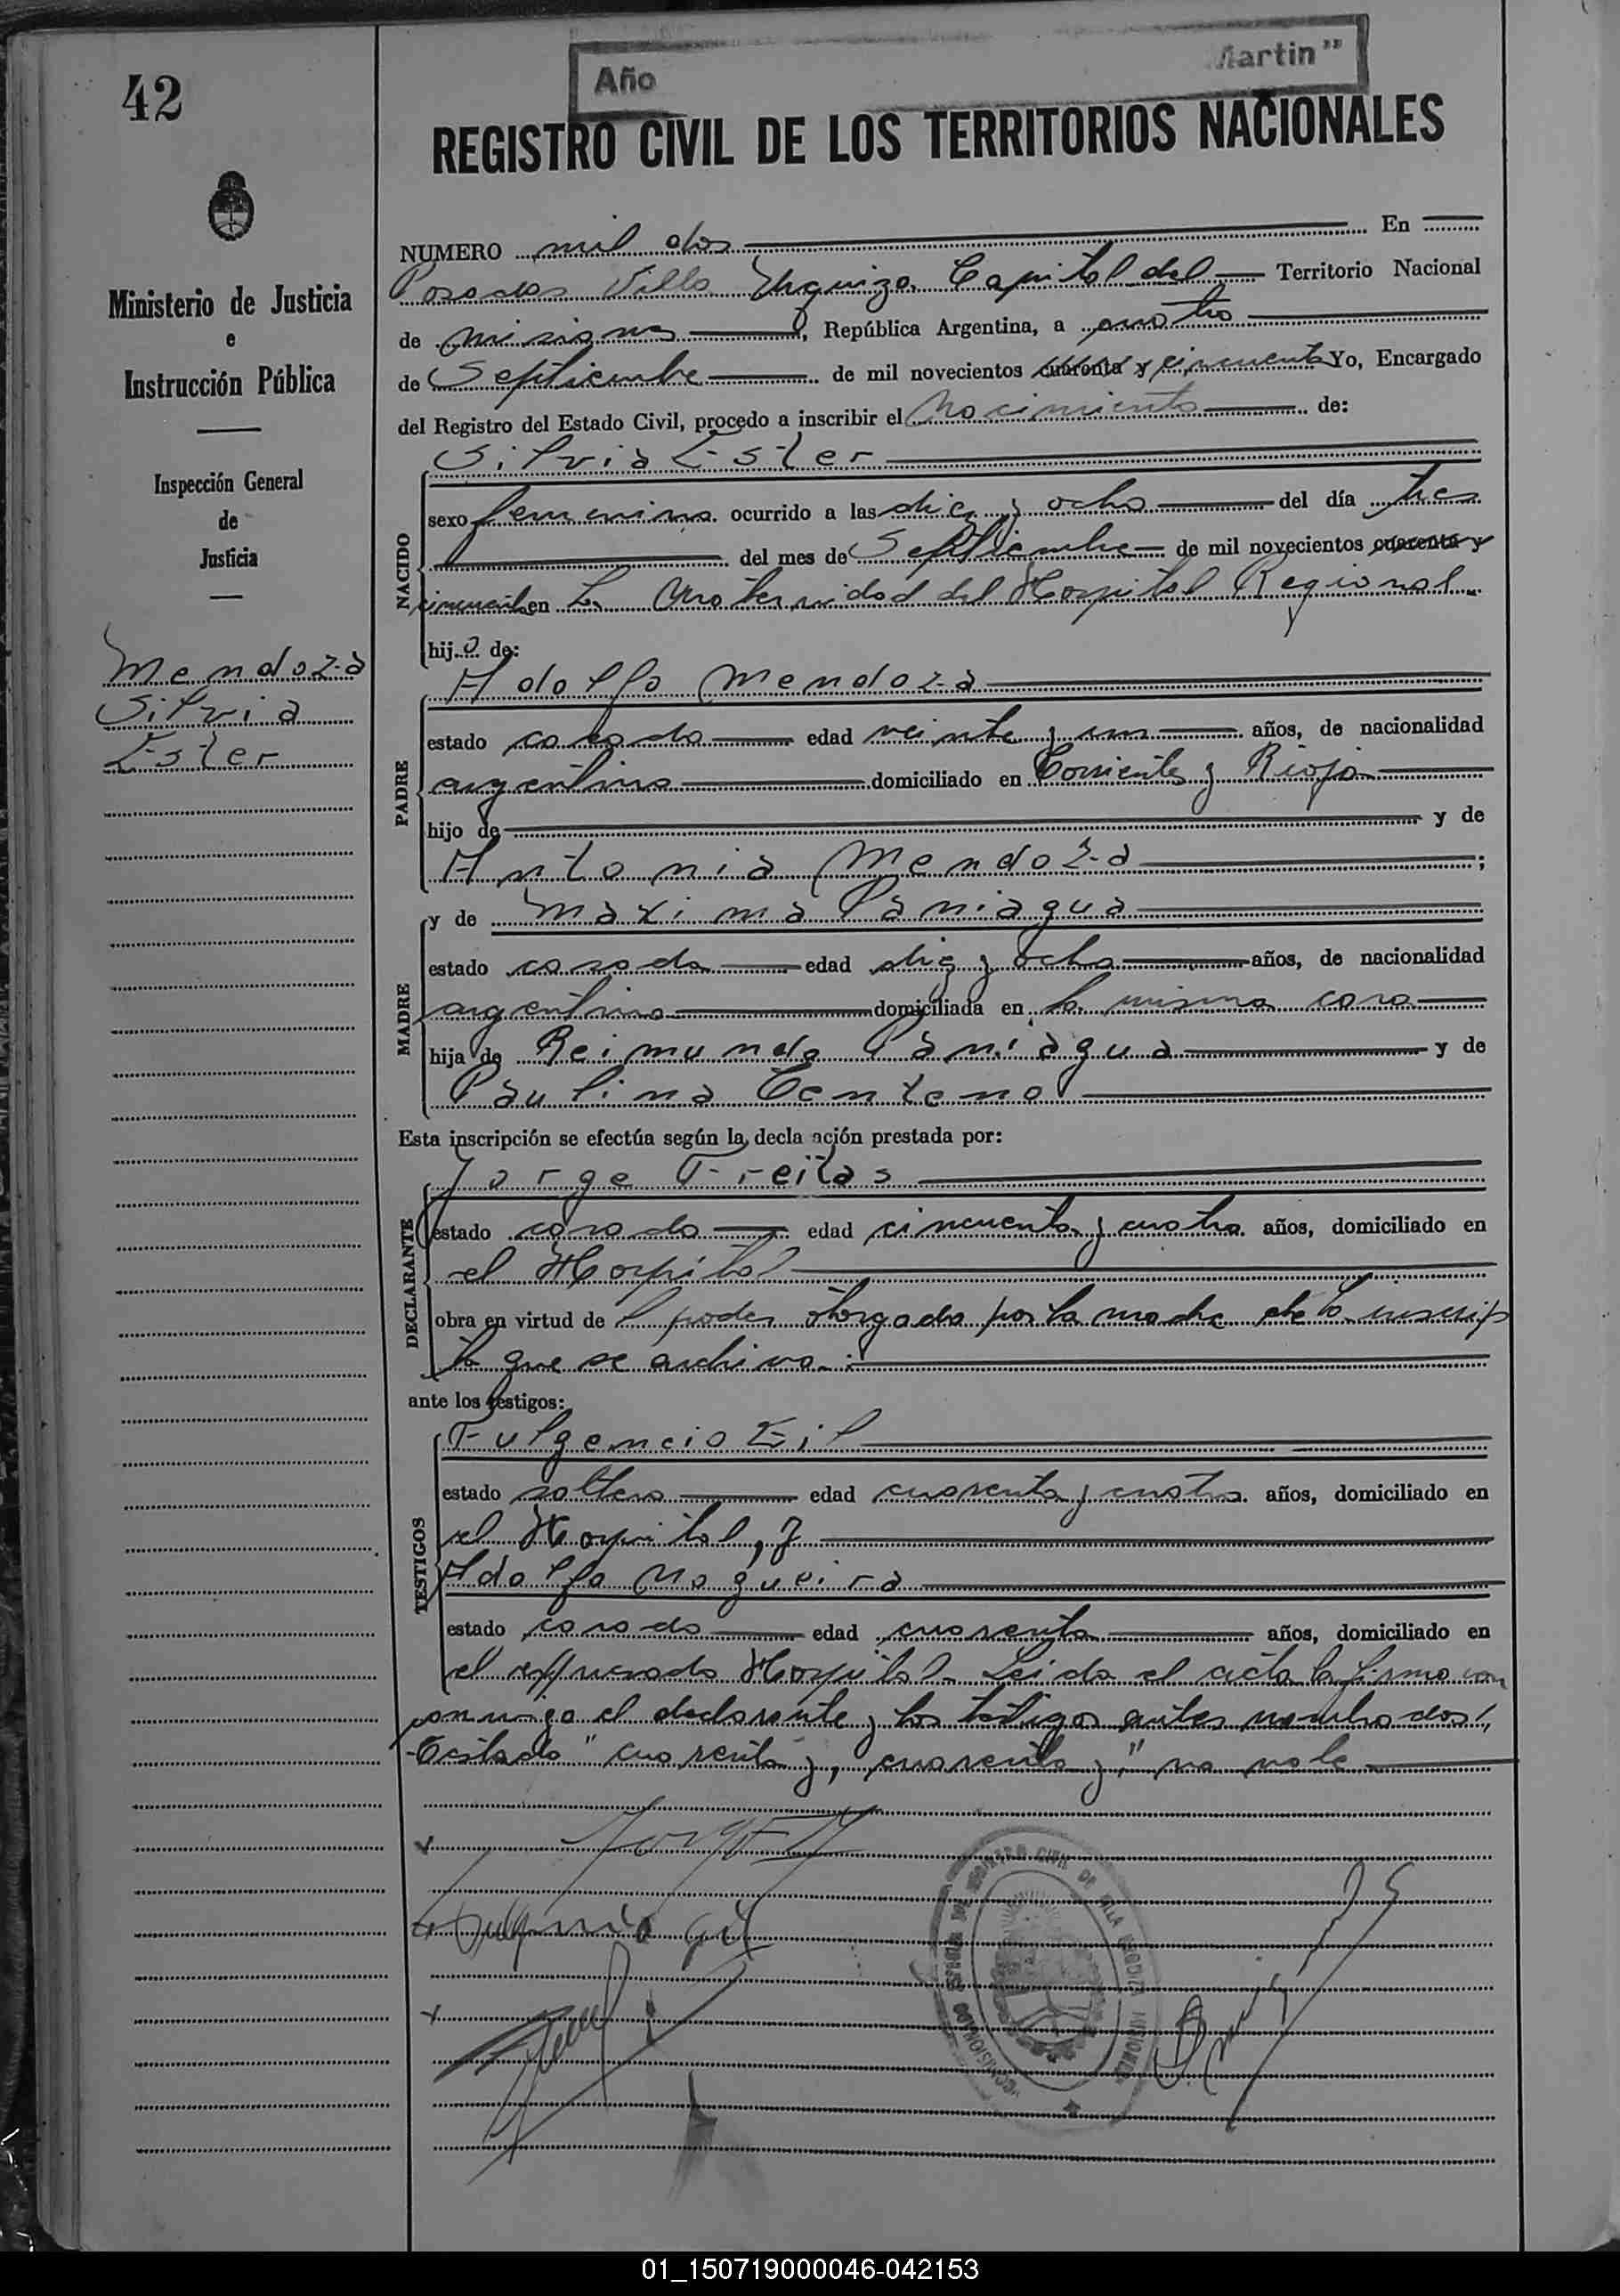 42
Año Martin"
REGISTRO CIVIL DE LOS TERRITORIOS NACIONALES
Ministerio de Justicia
e
Instrucción Pública
Inspección General
de
Justicia
Mendoza
Silvia
Ester
NUMERO mil dos En
Posadas Villa Urquiza Capital del Territorio Nacional
de Misiones, República Argentina, a cuatro
de Septiembre de mil novecientos cuarenta y cincuenta Yo, Encargado
del Registro del Estado Civil, procedo a inscribir el Nacimiento de:
Silvia Ester
NACIDO
sexo femenino ocurrido a las diez y ocho del día tres
del mes de Septiembre de mil novecientos cuarenta y
cincuenta en La Maternidad del Hospital Regional
hija de:
Adolfo Mendoza
PADRE
estado casado edad veinte y un años, de nacionalidad
argentino domiciliado en Corrientes y Rioja
hijo de y de
Antonia Mendoza;
MADRE
y de Maxima Paniagua
estado casada edad diez y ocho años, de nacionalidad
argentina domiciliada en la misma casa
hija de Reimundo Paniagua y de
Paulina Centeno
Esta inscripción se efectúa según la decla ación prestada por:
Jorge Freitas
DECLARANTE
estado casado edad cincuenta y cuatro años, domiciliado en
el Hospital
obra en virtud del poder otorgado por la madre de la inscrip
ta que se archiva.
ante los testigos:
Fulgencio Gil
TESTIGOS
estado soltero edad cuarenta y cuatro años, domiciliado en
el Hospital, y
Adolfo Nogueira
estado casado edad cuarenta años, domiciliado en
el expresado Hospital. Leida el acta la firma con
conmigo el declarante y los testigos antes nombrados,
Testado "cuarenta y, cuarenta y" no vale
Fulgencio Gil
REGISTRO CIVIL DE VILLA URQUIZA MISIONES
01_150719000046-042153